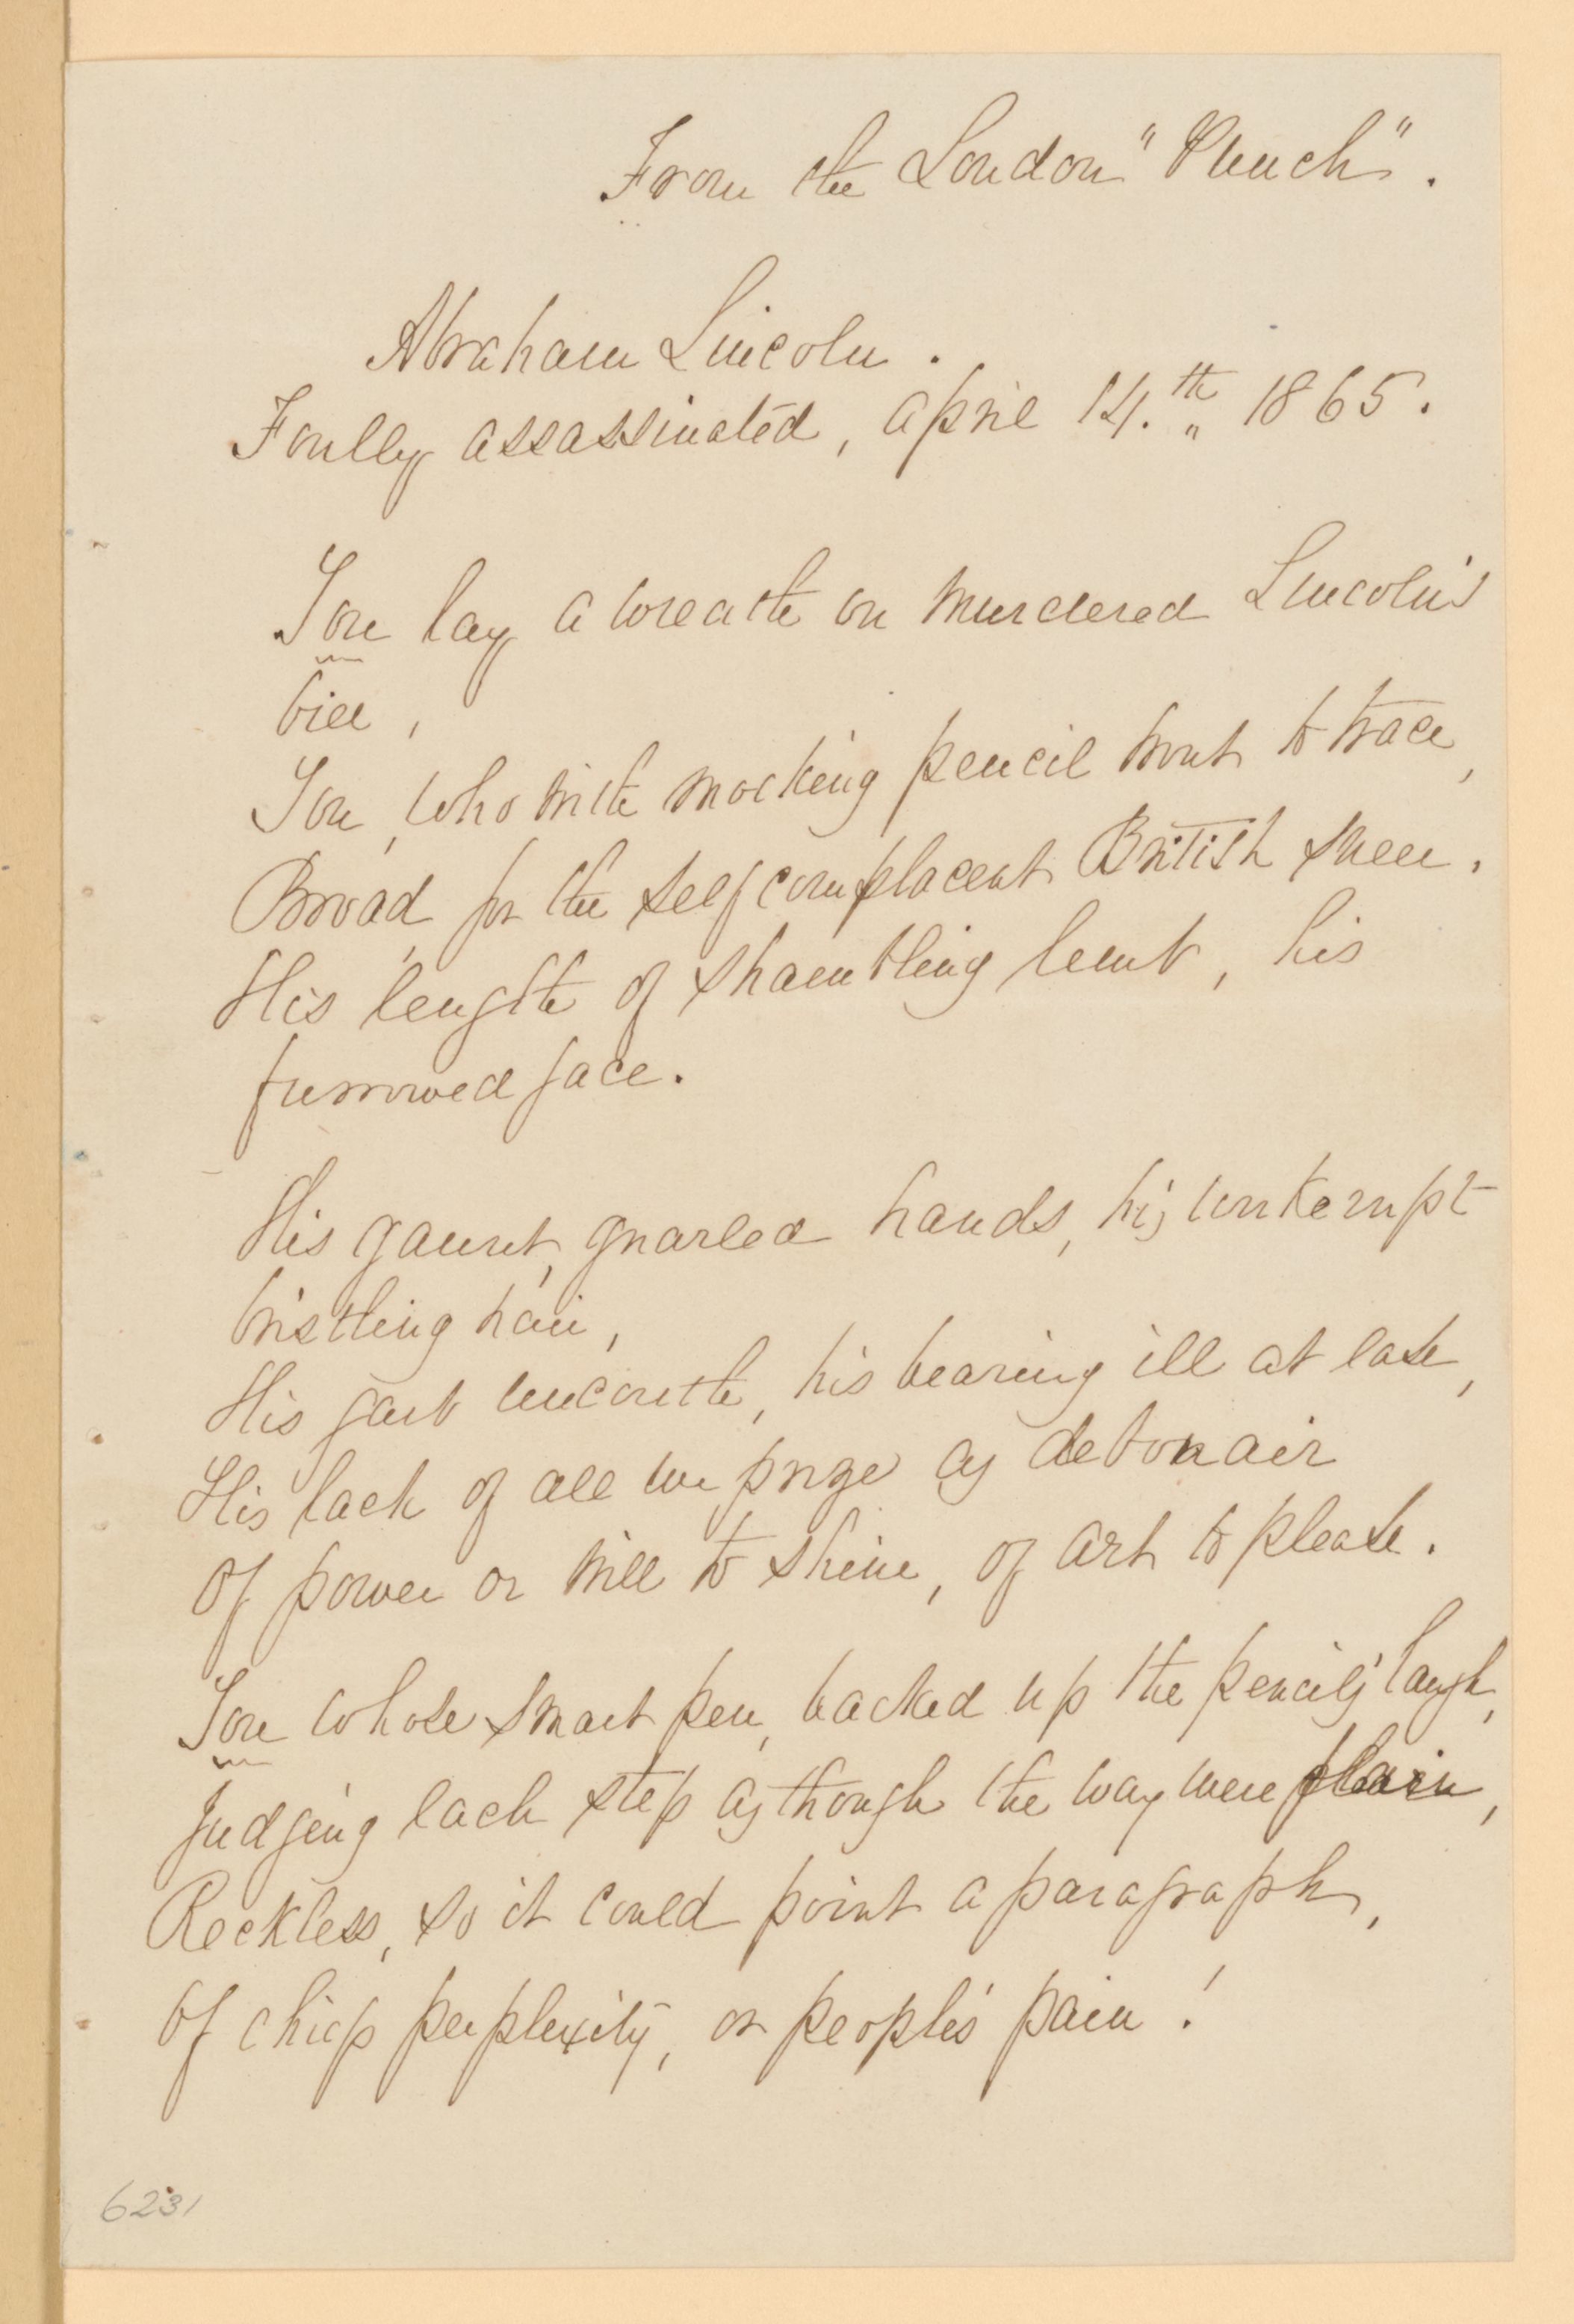 From the London "Punch".
Abraham Lincoln.
Foully assassinated, April 14.th 1865.
You lay a wreath on murdered Lincoln's
bier,
You, who with mocking pencil wont to trace,
Broad, for the self complacent British sneer.
His length of shambling limb, his
furrowed face.
His gaunt, gnarled hands, his unkempt
bristling hair,
His garb uncouth, his bearing ill at ease,
His lack of all we prize as debonair
Of power or will to shine, of art to please.
You whose smart pen, backed up the pencil's laugh,
Judging each step as though the way were plain,
Reckless, so it could point a paragraph,
Of chief's perplexity, or people's pain!
6231